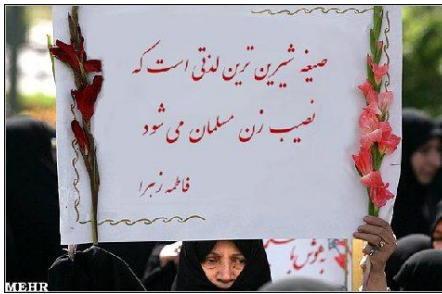 صیغه شیرین ترین لذتی است که
نصیب زن مسلمان می شود
فاطمه زهرا
MEHR